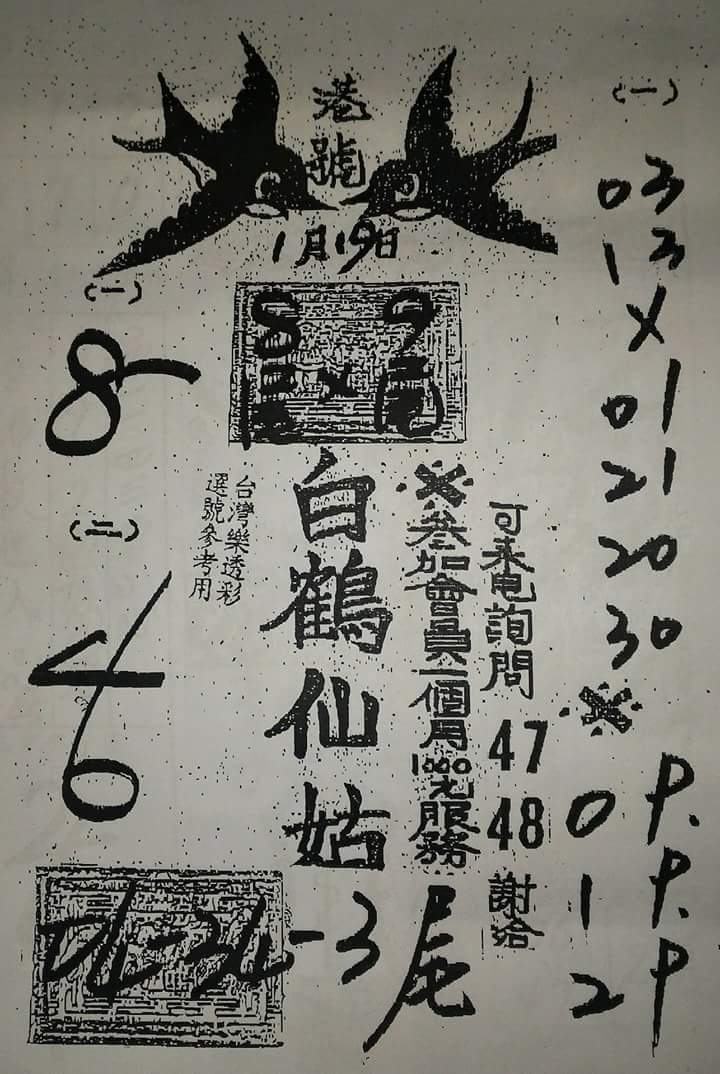 港號
1月19日
(一)
8
(二)
6
8 9
尾
台灣樂透彩
選號參考用
白鶴仙姑
※參加會員一個月1000元服務
可來电詢問 47 48 謝洽
3尾
(一)
03
13
X
01
21
20
30
※
0 P.
1 P.
2 P